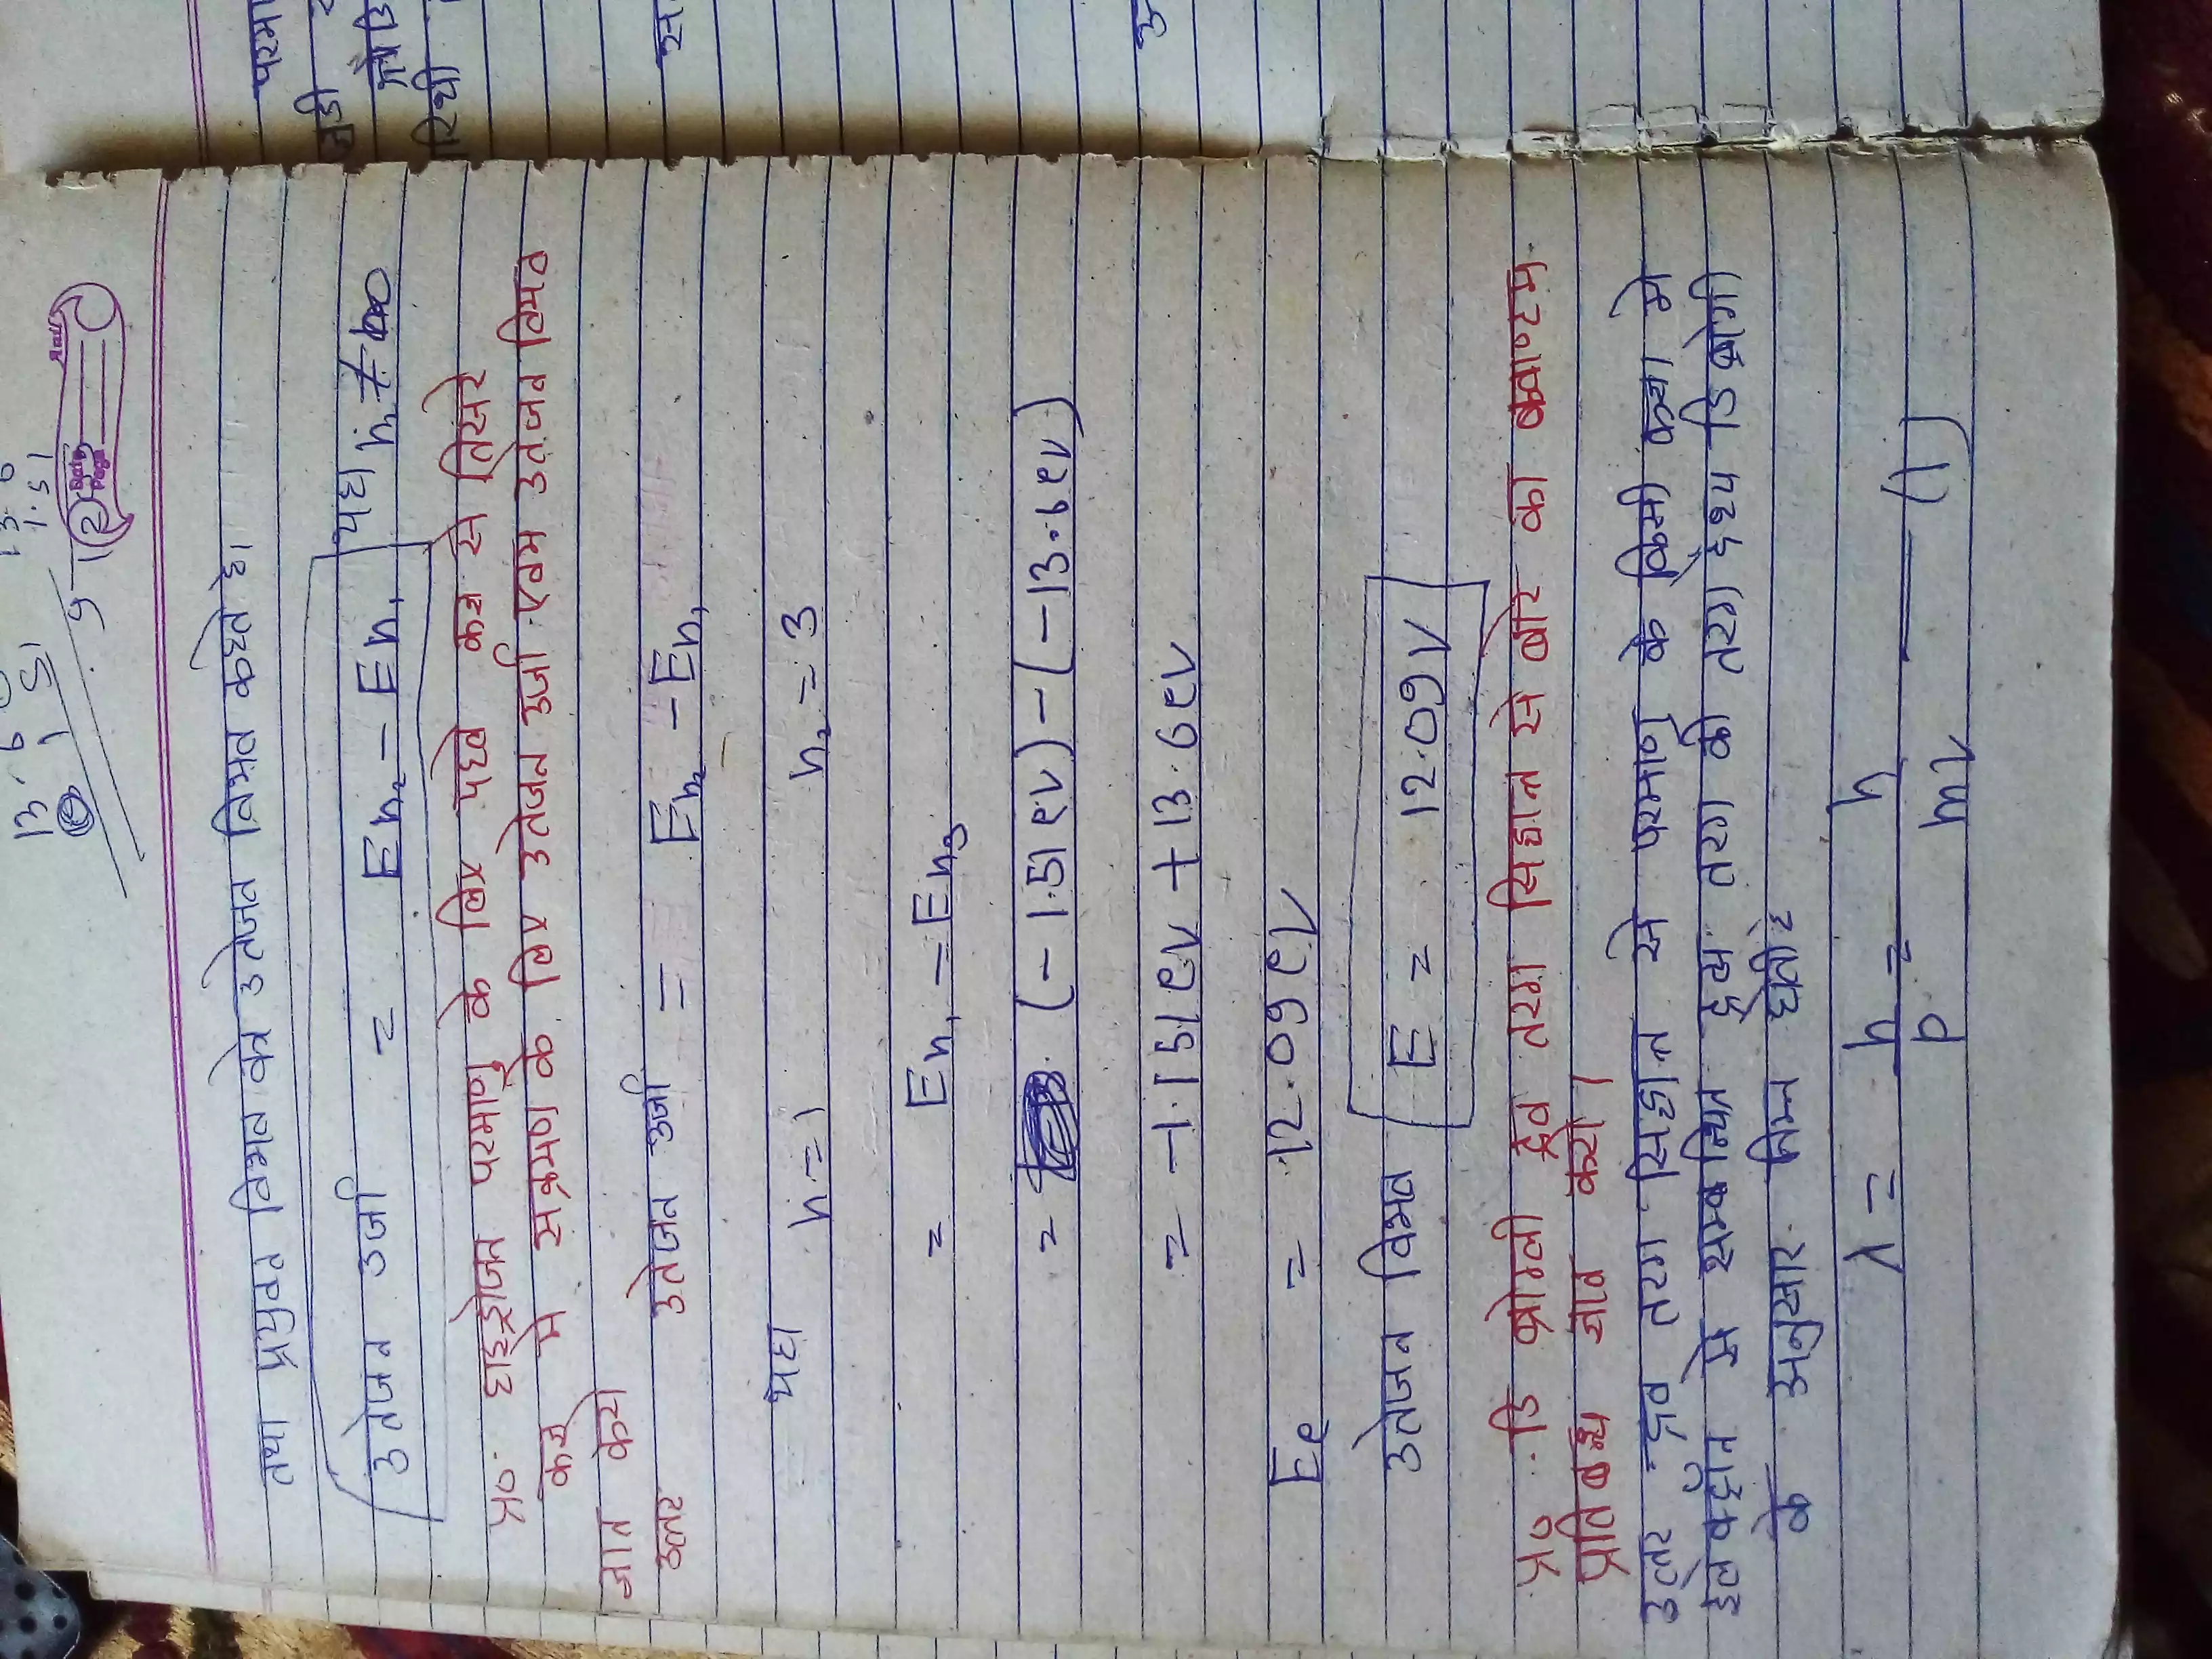 13.6
1.51
13.6
1.51
9
Date
Page
12
तथा प्रयुक्त विभव को उतेजन विभव कहते है।
उतेजन उर्जा = En₂ - En₁ यहा n₂ ≠ ∞
प्र० हाइड्रोजन परमाणु के लिए पहले कक्ष से तिसरे
कक्ष मे सक्रमण के लिए उतेजन उर्जा एवम उतेजन विभव
ज्ञात करो
उत्तर उतेजन उर्जा = En₂ - En₁
यहा n=1 n₂=3
= En₁ - En₃
= (-1.51ev) - (-13.6ev)
= -1.151ev + 13.6ev
Ee = 12.09ev
उतेजन विभव E = 12.09V
प्र० डि ब्रोग्ली द्रव तरग सिद्दान्त से बोर का क्वाण्टम
प्रतिबन्ध ज्ञात करो।
उत्तर द्रव तरग सिद्दान्त से परमाणु के किसी कक्षा मे
इलेक्ट्रॉन से सम्बन्धित द्रव्य तरग की तरग दैध्य डि ब्रोग्ली
के अनुसार निम्न होती है
λ = h/p = h/mv — (1)
परमा
सं
परिधी
उ